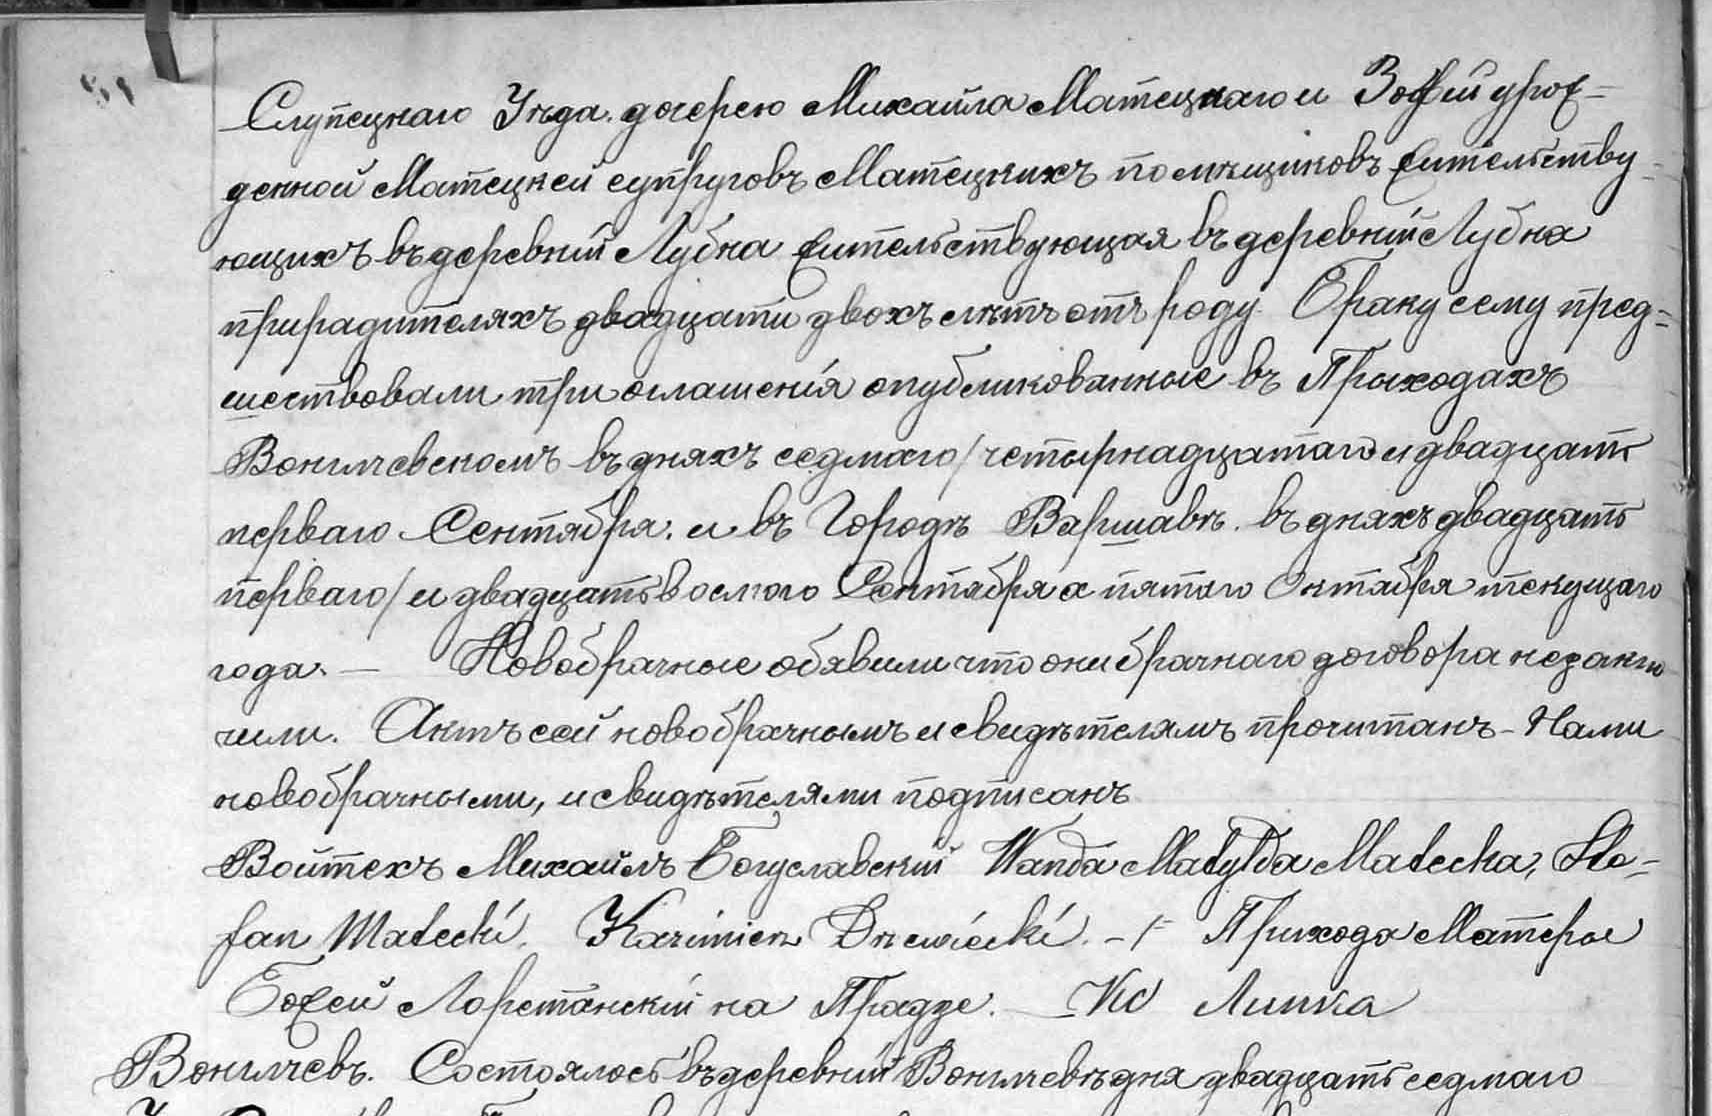 Слупецкаго Уѣзда. дочерею Михаила Матецкаго и Зофіи урож-
денной Матецкей супруговъ Матецкихъ помѣщиковъ жительству-
ющихъ въ деревнѣй Лубна жительствующая въ деревнѣй Лубна
природителяхъ двадцати двохъ лѣтъ отъ роду. Браку сему пред-
шествовали три оглашенія опубликованные въ Приходахъ
въ дняхъ седмаго / четырнадцатаго и двадцать
перваго Сентября. и въ Городѣ Варшавѣ. въ дняхъ двадцать
перваго / и двадцать восмого Сентября а пятаго Октября текущаго
года. — Новобрачные обявили что они брачнаго договора незаклю
чили. Актъ сей новобрачнымъ и свидѣтелямъ прочитанъ - Нами
новобрачными, и свидѣтелями подписанъ
Войтехъ Михаилъ Богуславскій Wanda Matylda Matecka, Ste-
fan Matecki. Kazimierz Drewiecki. - Прихода Матеры
Божей Лоретанскій на Прадзе. — Липка
Состоялось въ деревнѣй дня двадцать седмаго